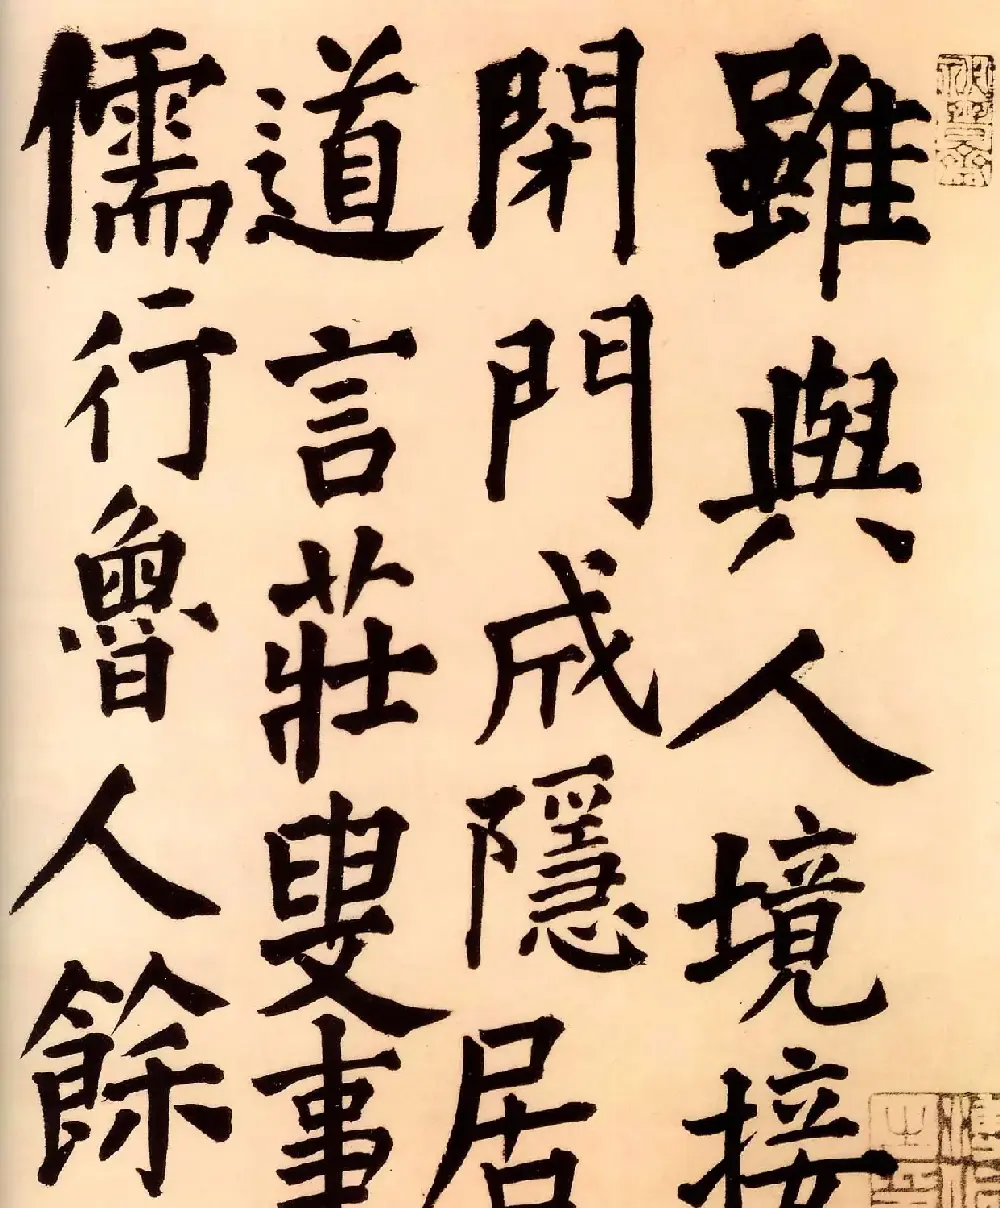 雖與人境接
閉門成隱居
道言莊叟事
儒行魯人餘